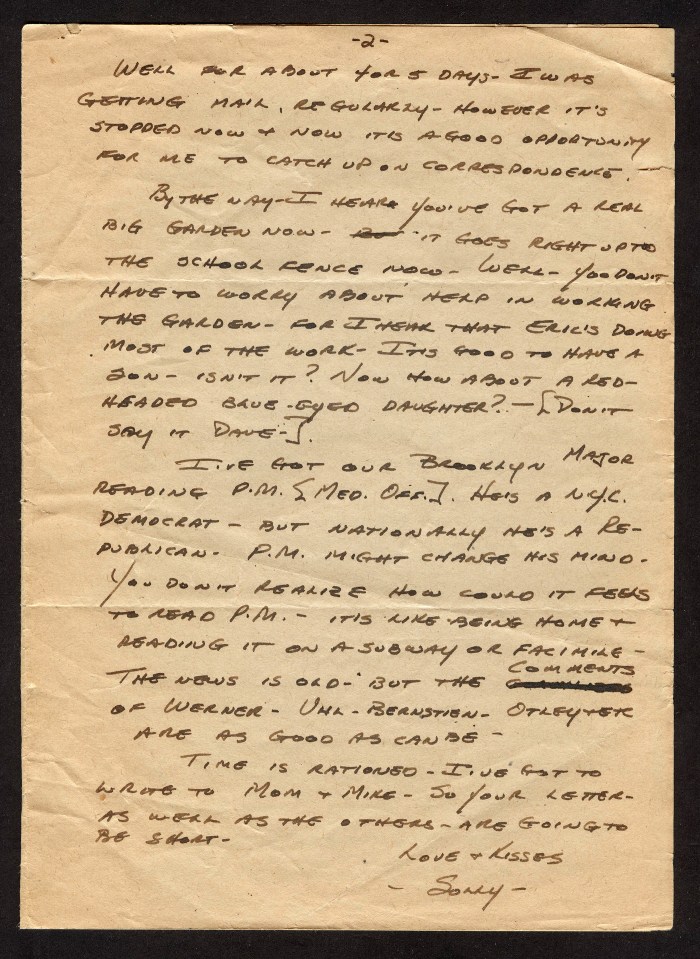 -2-
WELL FOR ABOUT 4 OR 5 DAYS - I WAS
GETTING MAIL, REGULARLY - HOWEVER IT'S
STOPPED NOW + NOW IT'S A GOOD OPPORTUNITY
FOR ME TO CATCH UP ON CORRESPONDENCE. -
BY THE WAY - I HEAR YOU'VE GOT A REAL
BIG GARDEN NOW - IT GOES RIGHT UP TO
THE SCHOOL FENCE NOW - WELL - YOU DON'T
HAVE TO WORRY ABOUT HELP IN WORKING
THE GARDEN - FOR I HEAR THAT ERIC'S DOING
MOST OF THE WORK - IT'S GOOD TO HAVE A
SON - ISN'T IT? NOW HOW ABOUT A RED-
HEADED BLUE-EYED DAUGHTER? - [DON'T
SAY IT DAVE -].
I'VE GOT OUR BROOKLYN MAJOR
READING P.M. [MED. OFF.]. HE'S A N.Y.C.
DEMOCRAT - BUT NATIONALLY HE'S A RE-
PUBLICAN - P.M. MIGHT CHANGE HIS MIND -
YOU DON'T REALIZE HOW GOOD IT FEELS
TO READ P.M. - IT'S LIKE BEING HOME +
READING IT ON A SUBWAY OR FACIMILE -
THE NEWS IS OLD - BUT THE COMMENTS
OF WERNER - UHL - BERNSTIEN - OTLEY + ER
ARE AS GOOD AS CAN BE -
TIME IS RATIONED - I'VE GOT TO
WRITE TO MOM + MIKE - SO YOUR LETTER -
AS WELL AS THE OTHERS - ARE GOING TO
BE SHORT -
LOVE + KISSES
- SOLLY -